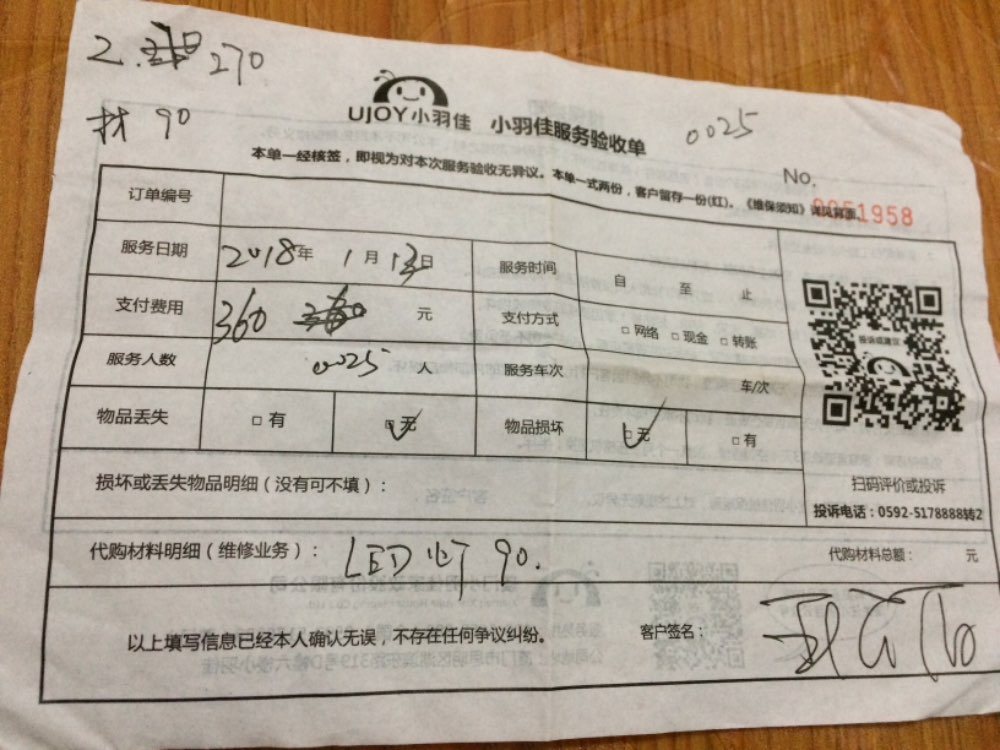 2. 270
材 90
UJOY小羽佳 小羽佳服务验收单 0025
本单一经核签，即视为对本次服务验收无异议。本单一式两份，客户留存一份(红)。《维保须知》详见背面。
No. 0051958
订单编号
服务日期 2018年 1月 13日 服务时间 自 至 止
支付费用 360 元 支付方式 □ 网络 □ 现金 □ 转账
服务人数 0025 人 服务车次 车/次
物品丢失 □ 有 ☑ 无 物品损坏 ☑ 无 □ 有
投诉或建议
扫码评价或投诉
投诉电话：0592-5178888转2
损坏或丢失物品明细（没有可不填）：
代购材料明细（维修业务）： LED灯 90. 代购材料总额： 元
以上填写信息已经本人确认无误，不存在任何争议纠纷。 客户签名：